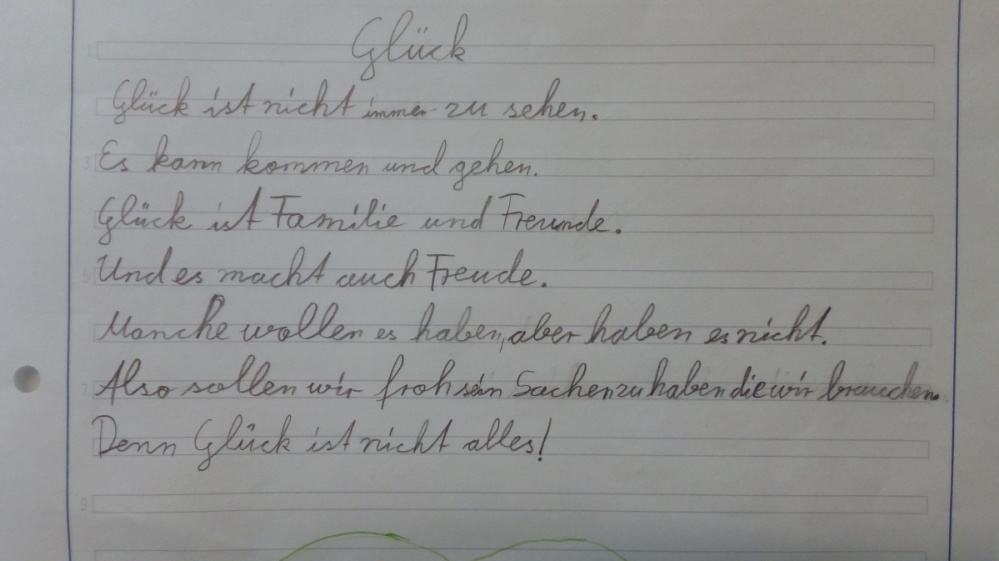 Glück
Glück ist nicht immer zu sehen.
Es kann kommen und gehen.
Glück ist Familie und Freunde.
Und es macht auch Freude.
Manche wollen es haben, aber haben es nicht.
Also sollen wir froh sein Sachen zu haben die wir brauchen.
Denn Glück ist nicht alles!